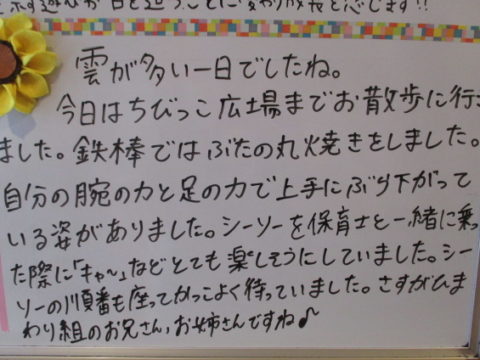 示す遊びが日を追うごとに変わり成長を感じます!!
雲が多い一日でしたね。
今日はちびっこ広場までお散歩に行き
ました。鉄棒ではぶたの丸焼きをしました。
自分の腕の力と足の力で上手にぶり下がって
いる姿がありました。シーソーを保育士と一緒に乗っ
た際に「キャ〜」などとても楽しそうにしていました。シー
ソーの順番も座ってかっこよく待っていました。さすがひま
わり組のお兄さん,お姉さんですね♪